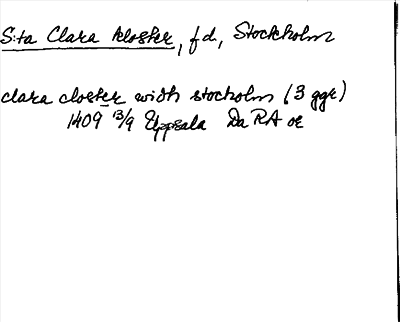 S:ta Clara kloster, f.d., Stockholm
clara closter widh stocholm (3 ggr)
1409 13/9 Uppsala Da RA oe